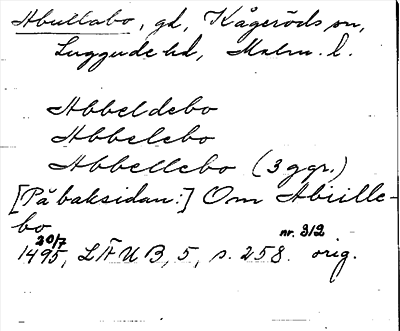 Abullabo, gd, Kågeröds sn,
Luggude hd, Malm. l.
Abbeldebo
Abbelebo
Abbellebo (3 ggr.)
[På baksidan:] Om Abiille-
bo
20/7 1495, LÄUB, 5, s. 258. nr. 312 orig.